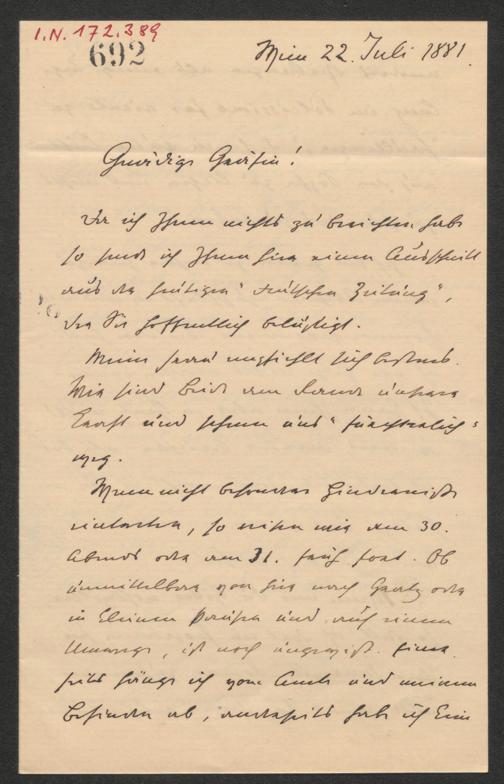 I.N. 172.389
692
Wien 22. Juli 1881.
Gnädige Gräfin!
Da ich Ihnen nichts zu berichten habe
so sende ich Ihnen hier einen Ausschnitt
aus der heutigen "Deutschen Zeitung",
der Sie hoffentlich belustigt.
Meine Frau empfiehlt sich bestens.
Wir sind beide am Rande unserer
Kraft und sehnen uns "fürchterlich"
weg.
Wenn nicht besondere Hindernisse
eintreten, so reisen wir am 30.
Abends oder am 31. früh fort. Ob
unmittelbar von hier nach oder
in kleinen Pausen und auf einem
Umwege, ist noch ungewiß. Einer-
seits hänge ich vom Amte und meinem
Befinden ab, anderseits habe ich kein